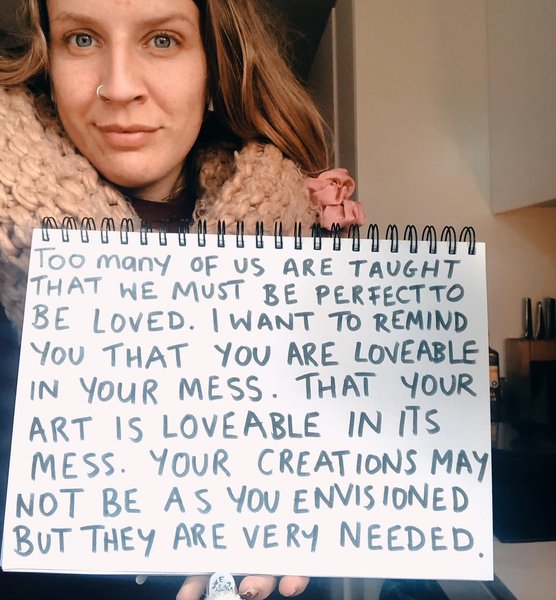 TOO MANY OF US ARE TAUGHT
THAT WE MUST BE PERFECT TO
BE LOVED. I WANT TO REMIND
YOU THAT YOU ARE LOVEABLE
IN YOUR MESS. THAT YOUR
ART IS LOVEABLE IN ITS
MESS. YOUR CREATIONS MAY
NOT BE AS YOU ENVISIONED
BUT THEY ARE VERY NEEDED.